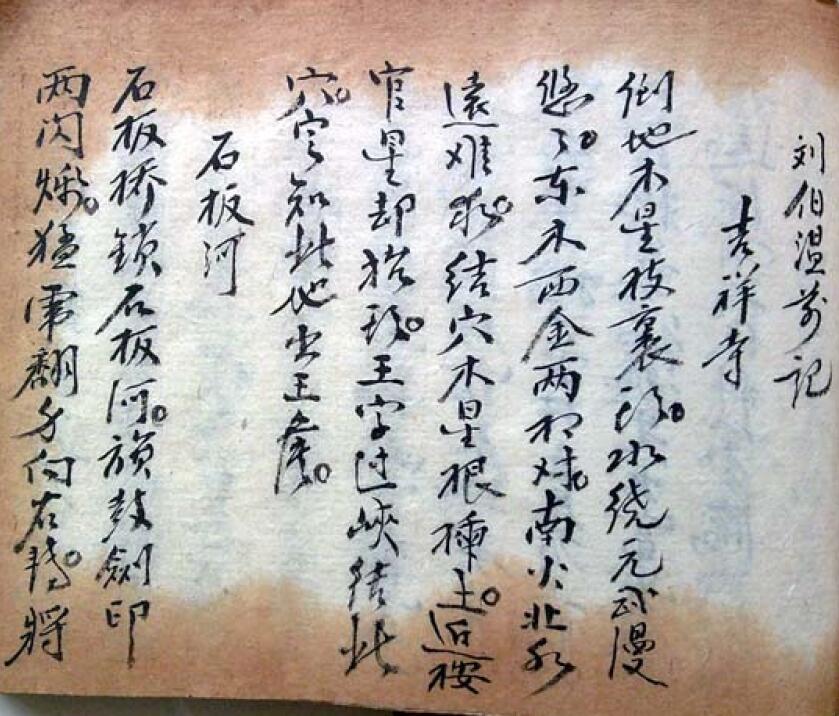 刘伯温前记
吉祥寺
倒地木星枝裹形。水绕元武漫
悠々。东木西金两相对。南火北水
远难求。结穴木星根插土。近按
官星却抬头。王字过峡结此
穴。穴知此地出王侯。
石板河
石板桥锁石板河。旗鼓劍印
两闪烁。猛虎翻身向右转。將